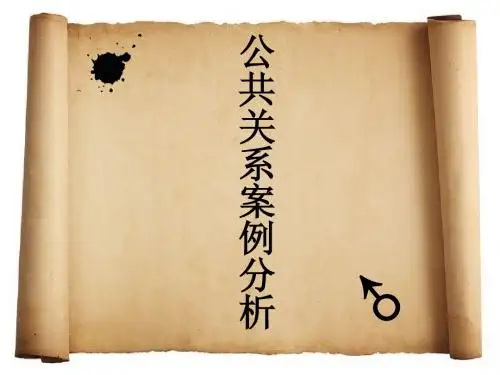 公共关系案例分析